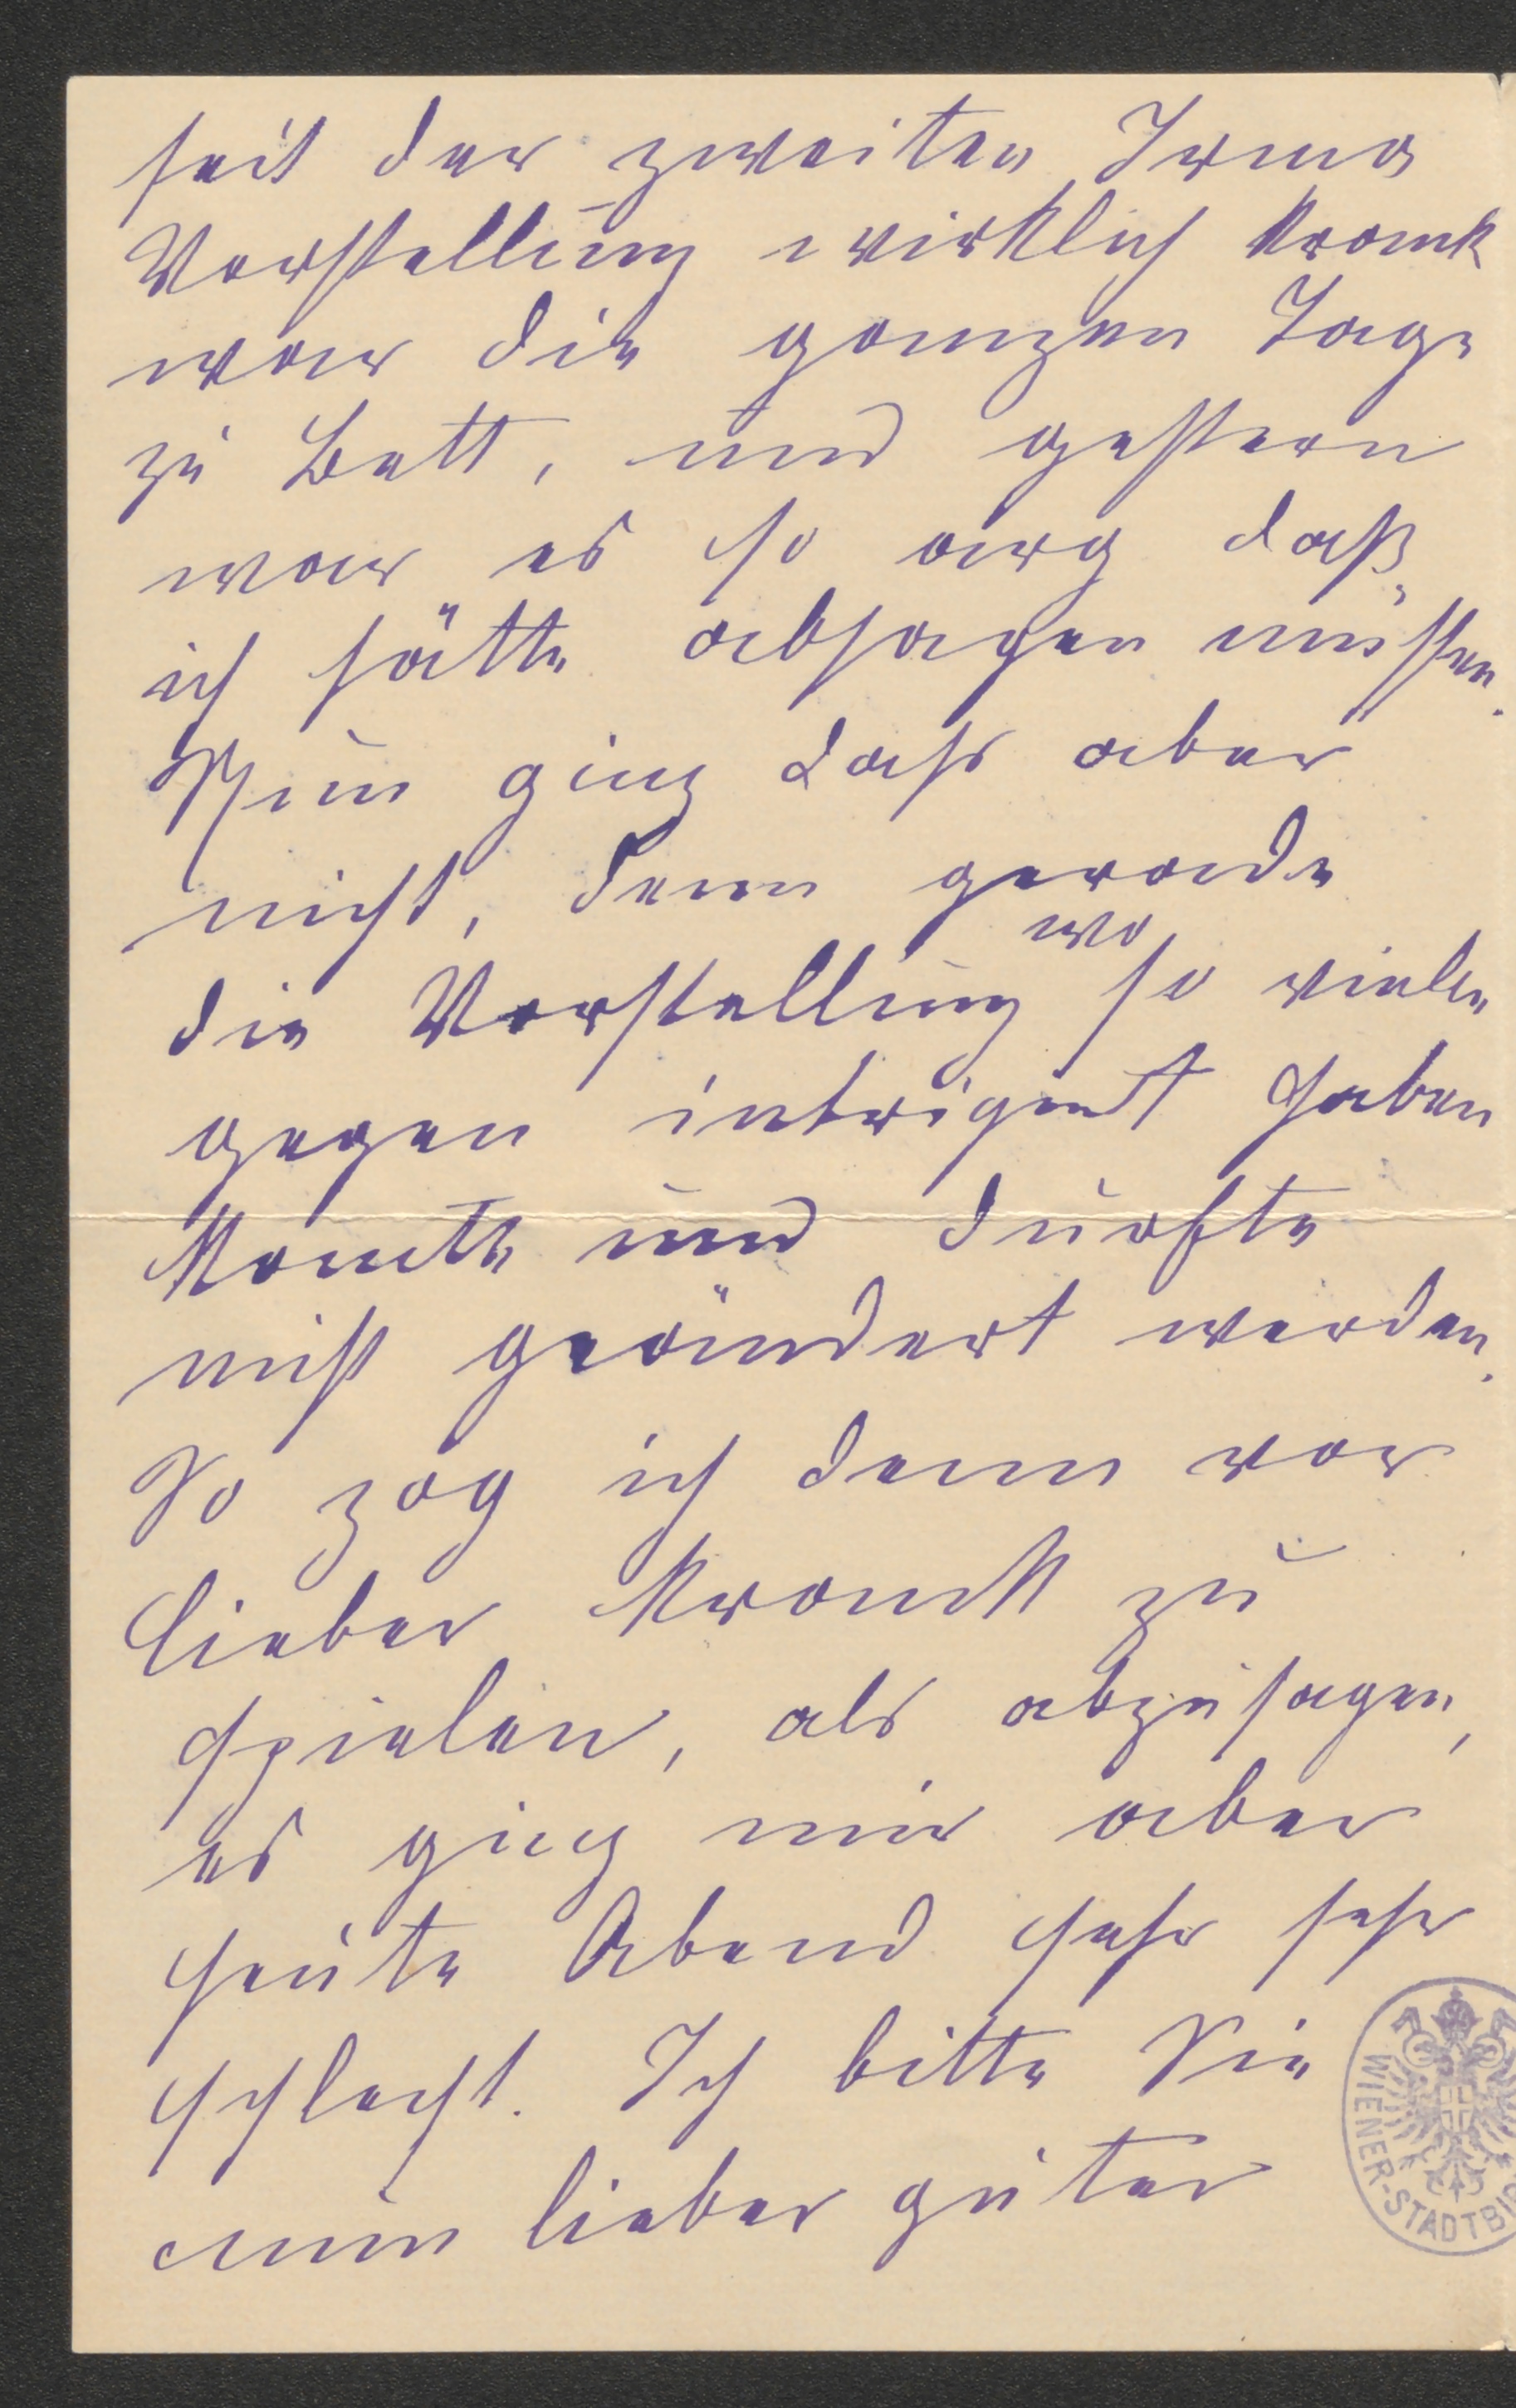 seit der zweiten Irma
Vorstellung wirklich krank
war die ganzen Tage
zu Bett, und gestern
war es so arg daß
ich hätte absagen müssen.
Nun ging dass aber
nicht, denn gerade
wo
die Vorstellung so viele
gegen intrigirt haben
konnte und durfte
nicht geändert werden.
So zog ich denn vor
lieber krank zu
spielen, als abzusagen,
es ging mir aber
heute Abend sehr sehr
schlecht. Ich bitte Sie
nun lieber guter
WIENER-STADTBI